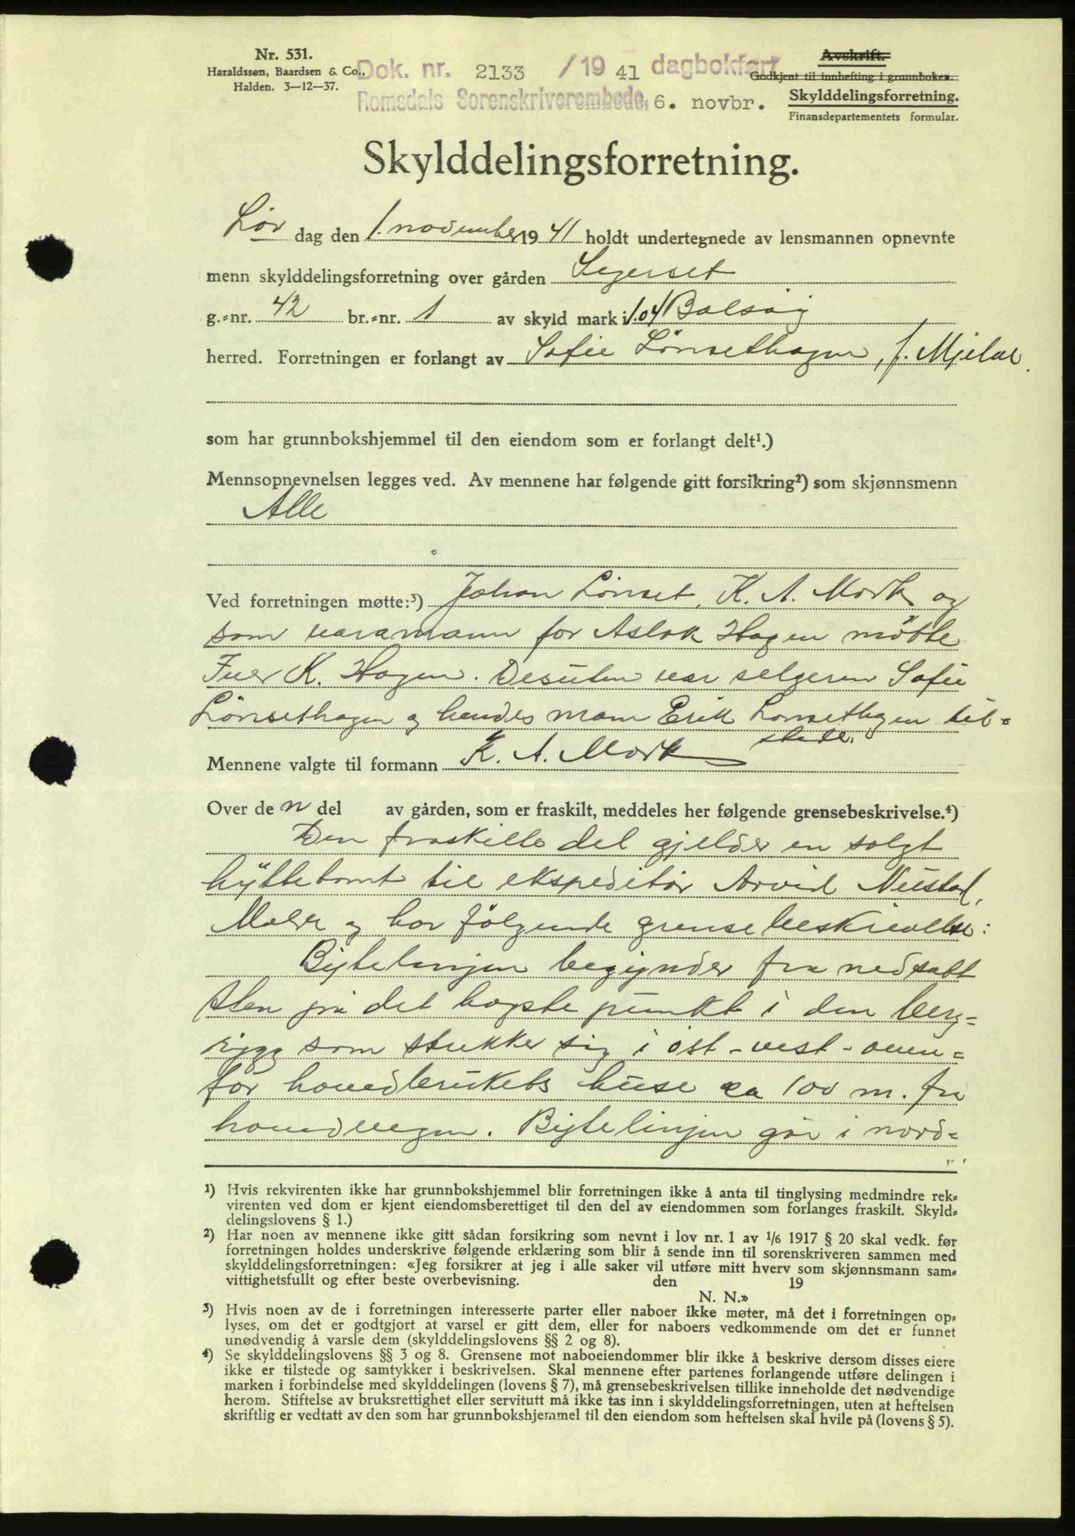 Nr. 531.
Haraldssøn, Baardsen & Co.,
Halden. 3—12—37.
Dok. nr. 2133 /19 41 dagbokført
Romsdals Sorenskriverembede, 6. novbr.
Avskrift.
Godkjent til innhefting i grunnboken.
Skylddelingsforretning.
Finansdepartementets formular.
Skylddelingsforretning.
Lør dag den 1. november 19 41 holdt undertegnede av lensmannen opnevnte
menn skylddelingsforretning over gården
g.-nr. 42 br.-nr. 1 av skyld mark 1.04 i Bolsøy
herred. Forretningen er forlangt av Sofie Lønsethagen, f. Mjelve.
som har grunnbokshjemmel til den eiendom som er forlangt delt¹.)
Mennsopnevnelsen legges ved. Av mennene har følgende gitt forsikring²) som skjønnsmenn
Alle
Ved forretningen møtte:³) Johan Lønset, K. A. Mork og
som varamann for Aslak Hagen møtte
Iver K. Hagen. Desuten var selgeren Sofie
Lønsethagen og hendes mann Erik Lønsethagen til-
stede.
Mennene valgte til formann K. A. Mork
Over de n del av gården, som er fraskilt, meddeles her følgende grensebeskrivelse.⁴)
Den fraskilte del gjelder en solgt
hyttetomt til ekspeditør Arvid Neistad,
Molde og har følgende grensebeskrivelse:
Bytelinjen begynder fra nedsatt
sten på det høgste punkt i den berg-
rygg som strekker sig i øst-vest-oven-
for hovedbrukets huse ca 100 m. fra
hovedvegen. Bytelinjen går i nord-
¹) Hvis rekvirenten ikke har grunnbokshjemmel blir forretningen ikke å anta til tinglysing medmindre rek-
virenten ved dom er kjent eiendomsberettiget til den del av eiendommen som forlanges fraskilt. Skyld-
delingslovens § 1.)
²) Har noen av mennene ikke gitt sådan forsikring som nevnt i lov nr. 1 av 1/6 1917 § 20 skal vedk. før
forretningen holdes underskrive følgende erklæring som blir å sende inn til sorenskriveren sammen med
skylddelingsforretningen: «Jeg forsikrer at jeg i alle saker vil utføre mitt hverv som skjønnsmann sam-
vittighetsfullt og efter beste overbevisning. den 19
N. N.»
³) Hvis noen av de i forretningen interesserte parter eller naboer ikke møter, må det i forretningen op-
lyses, om det er godtgjort at varsel er gitt dem, eller for naboers vedkommende om det er funnet
unødvendig å varsle dem (skylddelingslovens §§ 2 og 8).
⁴) Se skylddelingslovens §§ 3 og 8. Grensene mot naboeiendommer blir ikke å beskrive dersom disses eiere
ikke er tilstede og samtykker i beskrivelsen. Skal mennene efter partenes forlangende utføre delingen i
marken i forbindelse med skylddelingen (lovens § 7), må grensebeskrivelsen tillike inneholde det nødvendige
herom. Stiftelse av bruksrettighet eller servitutt må ikke tas inn i skylddelingsforretningen, uten at heftelsen
skriftlig er vedtatt av den som har grunnbokshjemmel til den eiendom som heftelsen skal hvile på (lovens § 5).